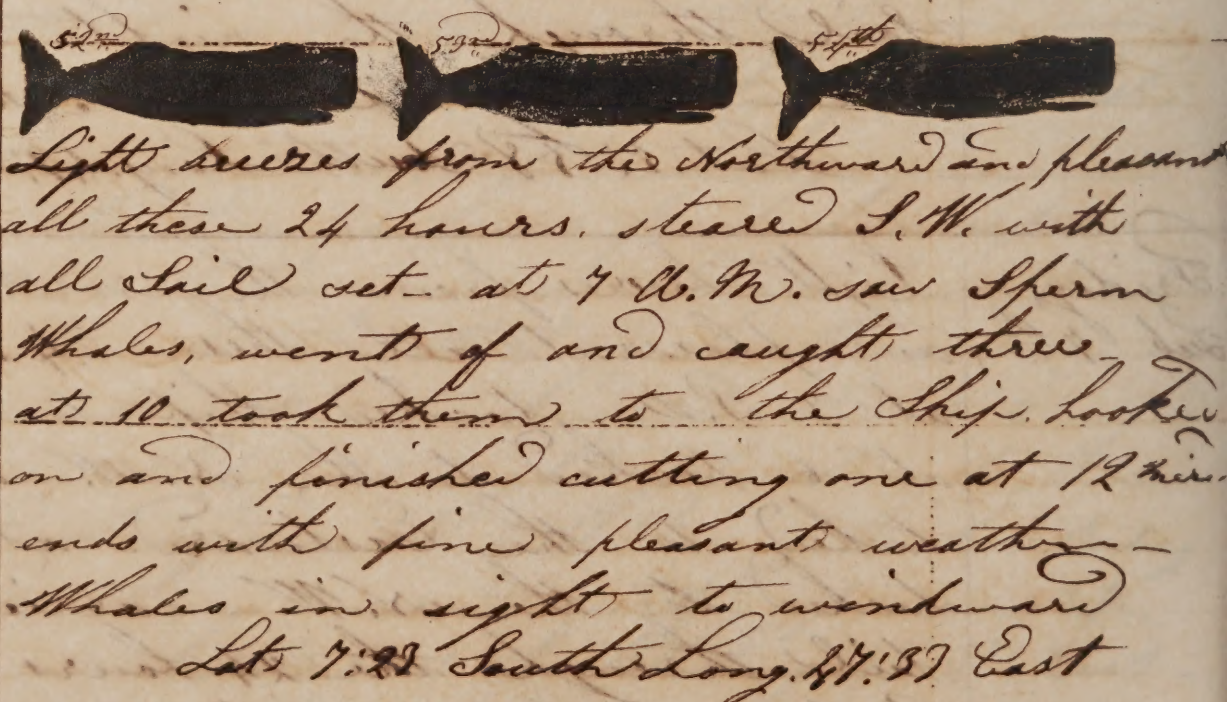 52nd 53rd 54th
Light breezes from the Northward and pleasant
all these 24 hours. steared S.W. with
all Sail set - at 7 A.M. saw Sperm
Whales, went of and caught three -
at 10 took them to the Ship. hooked
on and finished cutting one at 12
ends with fine pleasant weather -
Whales in sight to windward
Lat 7:23 South Long. 47:37 East